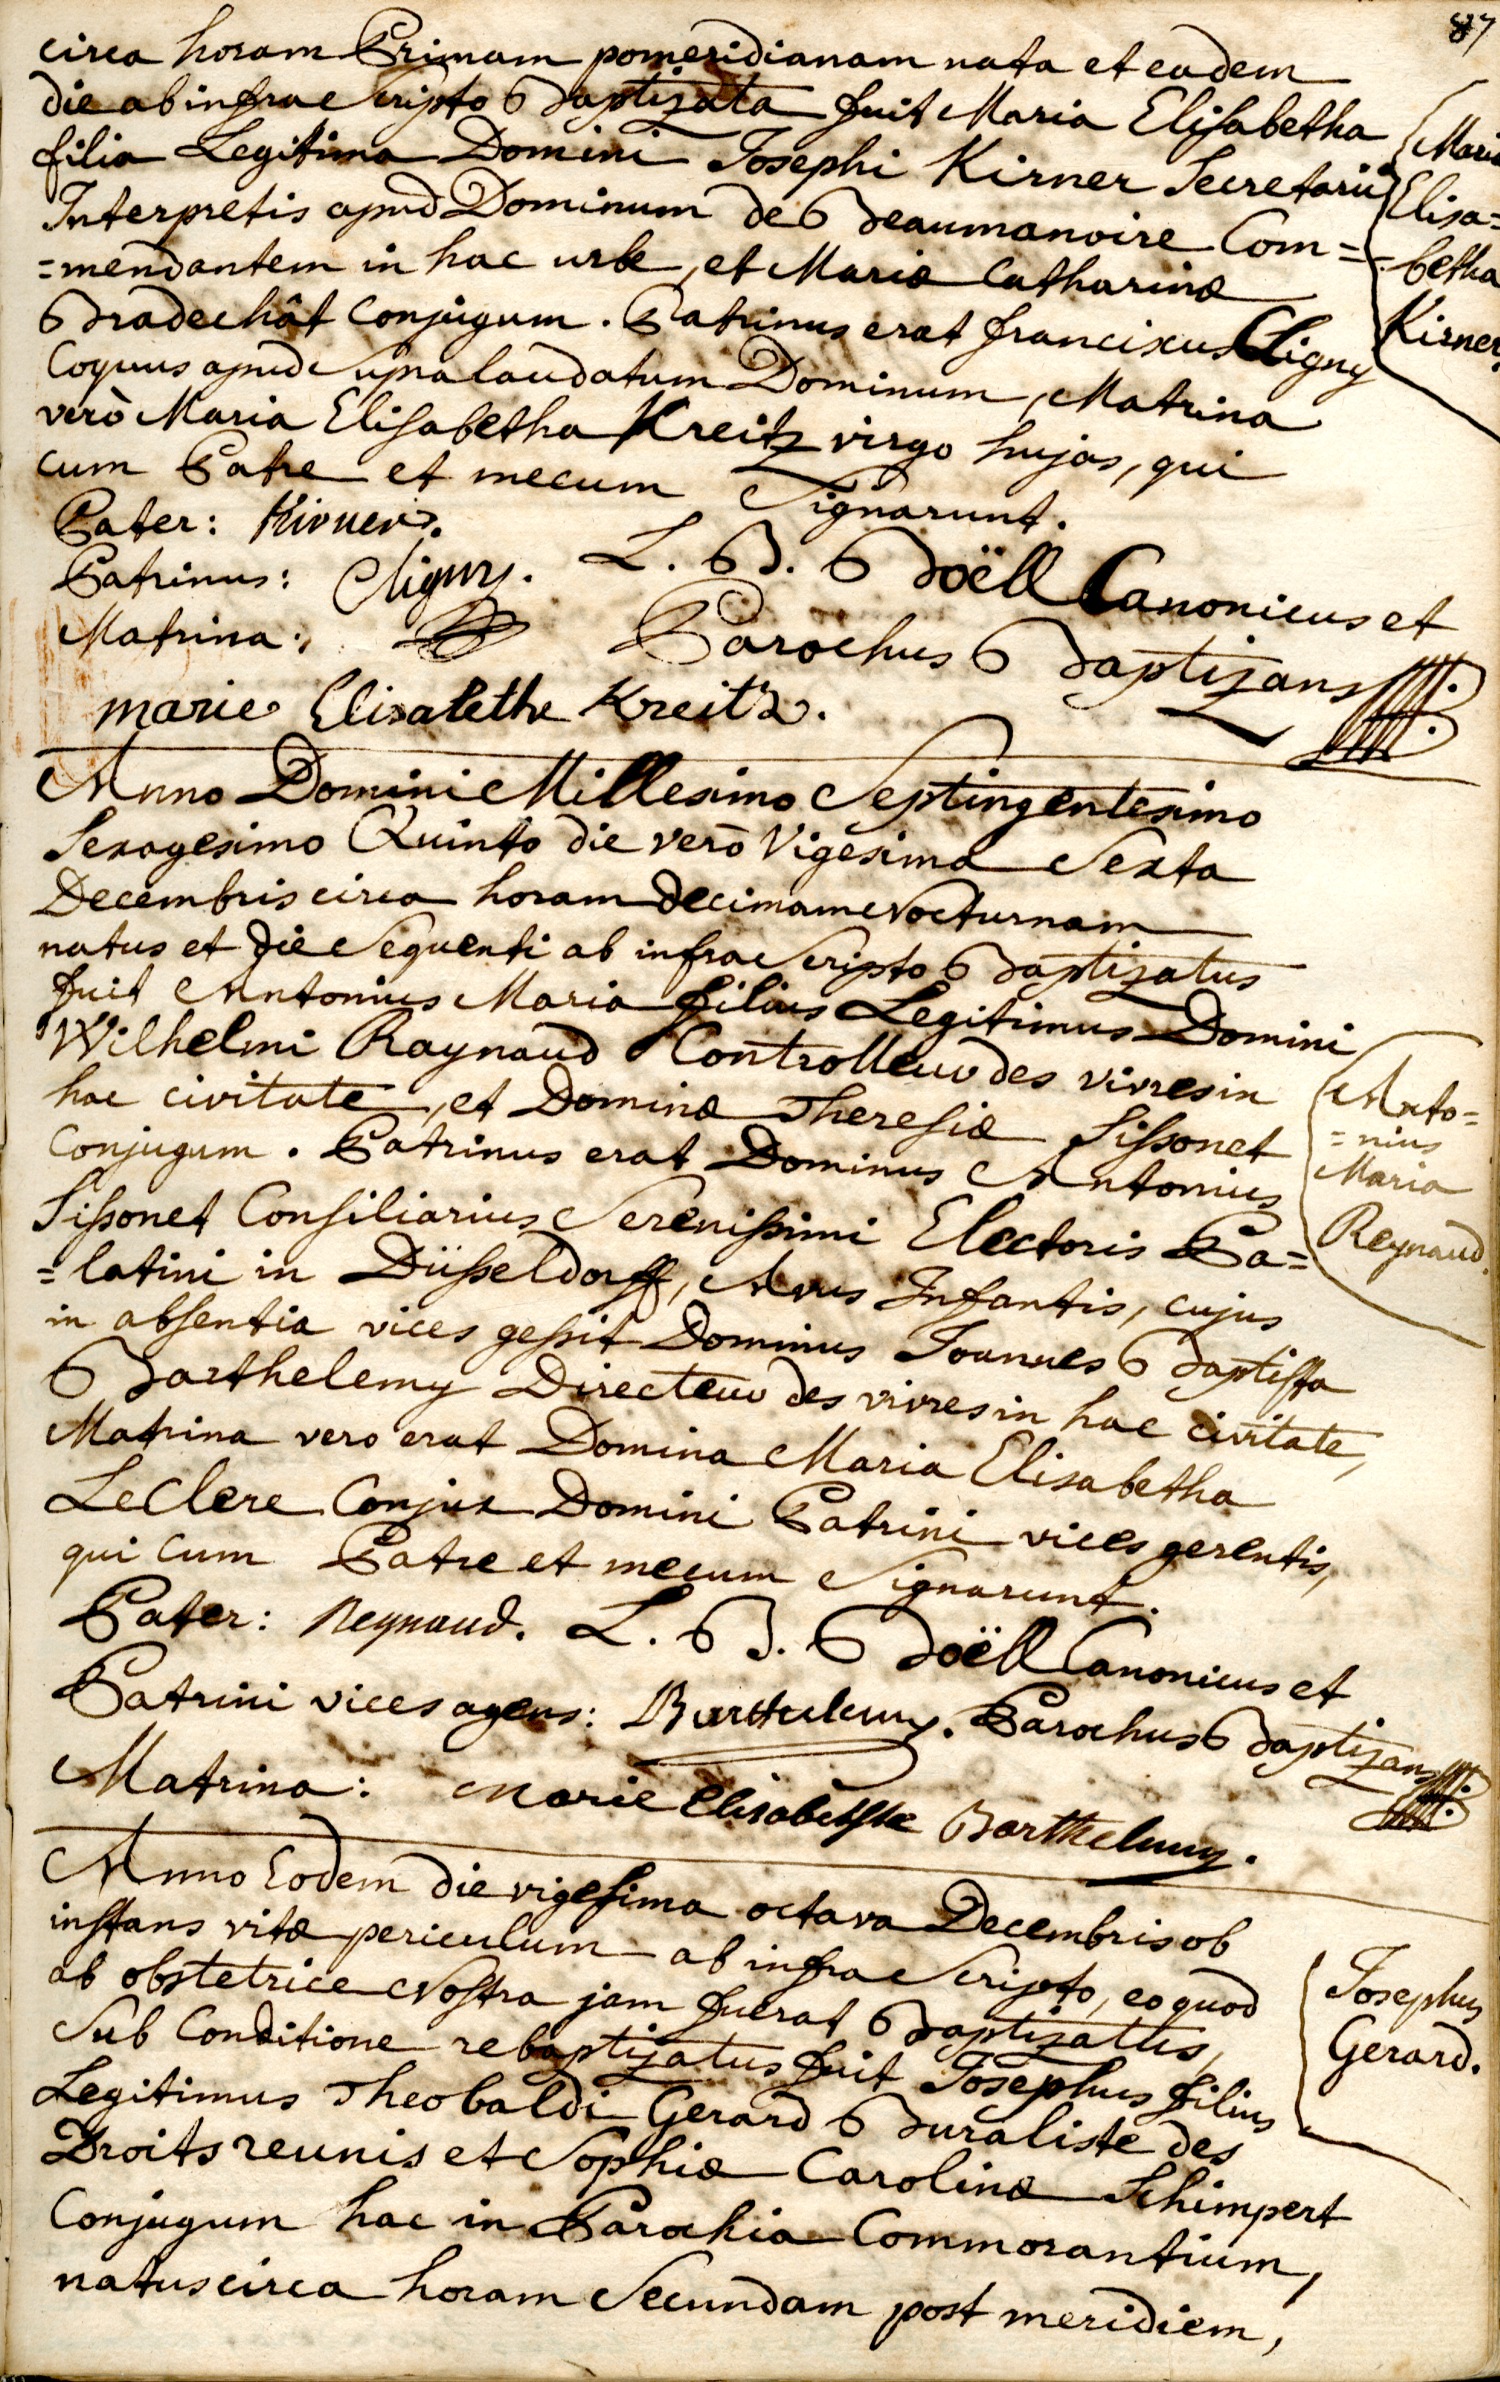 87
circa horam Primam pomeridianam nata et eadem
die ab infra Scripto Baptizata fuit Maria Elisabetha
filia Legitima Domini Josephi Kirner Secretarii
Interpretis apud Dominum de Beaumanoire Com=
=mendantem in hac urbe, et Mariæ Catharinæ
Bradechât Conjugum. Patrinus erat franciscus Cligny
Coquus apud Supralaudatum Dominum, Matrina
verò Maria Elisabetha Kreitz virgo hujas, qui
cum Patre et mecum Signarunt.
Maria
Elisa=
=betha
Kirner.
Pater: Kirner.
Patrinus: Cligny. L. B. Boëll Canonicus et
Matrina: Parochus Baptizans
marie Elisabethe Kreitz.
Anno Domini Millesimo Septingentesimo
Sexagesimo Quinto die verò Vigesima Sexta
Decembris circa horam decimam Nocturnam
natus et die Sequenti ab infra Scripto Baptizatus
fuit Antonius Maria filius Legitimus Domini
Wilhelmi Raynaud Controlleur des vivres in
hac civitate, et Dominæ Theresiæ Sissonet
Conjugum. Patrinus erat Dominus Antonius
Sissonet Consiliarius Serenissimi Electoris Pa=
=latini in Düsseldorff, Avus Infantis, cujus
in absentia vices gessit Dominus Joannes Baptista
Barthelemy Directeur des vivres in hac civitate,
Matrina vero erat Domina Maria Elisabetha
LeClere Conjux Domini Patrini vices gerentis,
qui Cum Patre et mecum Signarunt.
Anto=
=nius
Maria
Reynaud.
Pater: Reynaud. L. B. Boëll Canonicus et
Patrini vices agens: Barthelemy. Parochus Baptizans
Matrina: Marie Elisabethe Barthelemy.
Anno Eodem die vigesima octava Decembris ob
instans vitæ periculum ab infra Scripto, eo quod
ab obstetrice Nostra jam fuerat Baptizatus,
Sub Conditione rebaptizatus fuit Josephus filius
Legitimus Theobaldi Gerard Buraliste des
Droits reunis et Sophiæ Carolinæ Schimpert
Conjugum hac in Parochia Commorantium,
natus circa horam Secundam post meridiem,
Josephus
Gerard.